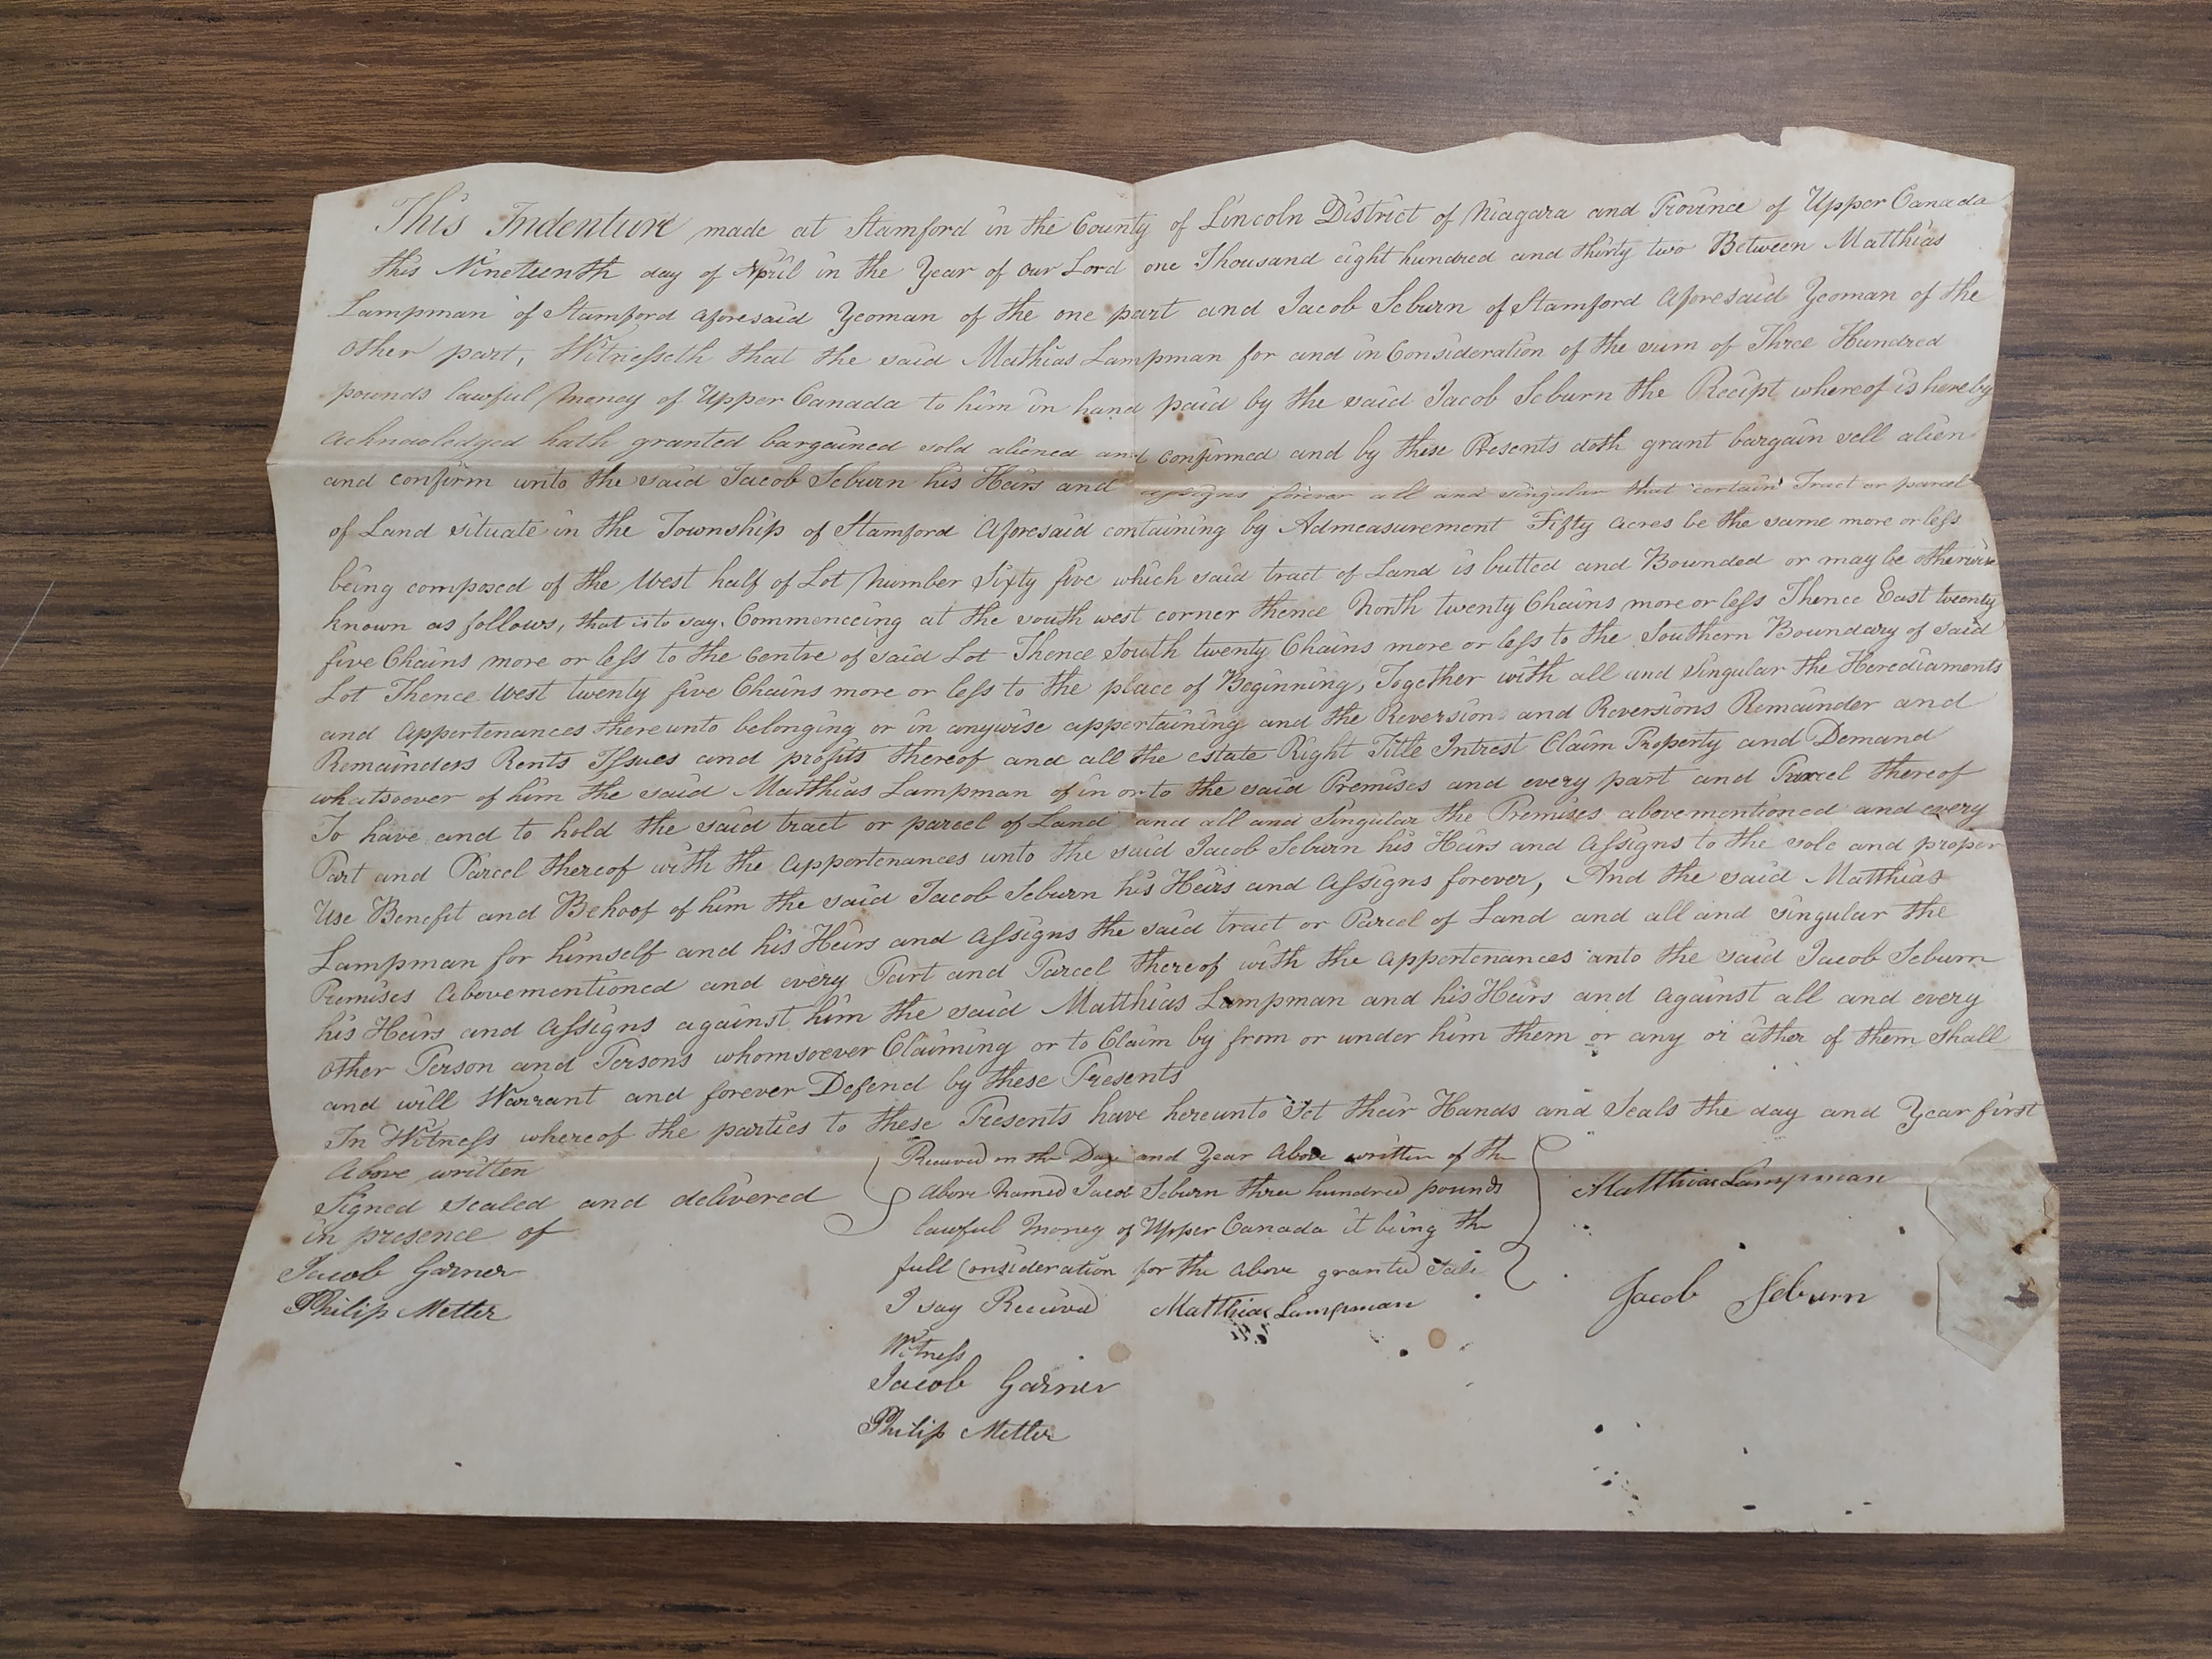 This Indenture made at Stamford in the County of Lincoln District of Niagara and Province of Upper Canada
this Nineteenth day of April in the Year of our Lord one Thousand eight hundred and thirty two Between Matthias
Lampman of Stamford aforesaid Yeoman of the one part and Jacob Seburn of Stamford Aforesaid Yeoman of the
other part; Witnesseth that the said Mathias Lampman for and in Consideration of the sum of Three Hundred
pounds lawful money of Upper Canada to him in hand paid by the said Jacob Seburn the Receipt whereof is hereby
Acknowledged hath granted bargained sold aliened and Confirmed and by these Presents doth grant bargain sell alien
and confirm unto the said Jacob Seburn his Heirs and assigns forever all and singular that certain Tract or parcel
of Land situate in the Township of Stamford Aforesaid containing by Admeasurement Fifty acres be the same more or less
being composed of the West half of Lot Number Sixty five which said tract of Land is butted and Bounded or may be otherwise
known as follows, that is to say, Commencing at the south west corner thence North twenty Chains more or less Thence East twenty
five Chains more or less to the Centre of said Lot Thence South twenty Chains more or less to the Southern Boundary of said
Lot Thence West twenty five Chains more or less to the place of Beginning, Together with all and singular the Herediaments
and appertenances thereunto belonging or in anywise appertaining and the Reversion and Reversions Remainder and
Remainders Rents Issues and profits thereof and all the estate Right Title Intrest Claim Property and Demand
whatsoever of him the said Matthias Lampman of in or to the said Premises and every part and Parcel thereof
To have and to hold the said tract or parcel of Land and all and Singular the Premises abovementioned and every
Part and Parcel thereof with the appertenances unto the said Jacob Seburn his Heirs and Assigns to the sole and proper
Use Benefit and Behoof of him the said Jacob Seburn his Heirs and Assigns forever, And the said Matthias
Lampman for himself and his Heirs and Assigns the said tract or Parcel of Land and all and singular the
Premises Abovementioned and every Part and Parcel thereof with the appertenances unto the said Jacob Seburn
his Heirs and Assigns against him the said Matthias Lampman and his Heirs and Against all and every
other Person and Persons whomsoever Claiming or to Claim by from or under him them or any or either of them shall
and will Warrant and forever Defend by these Presents
In Witness whereof the parties to these Presents have hereunto Set their Hands and Seals the day and Year first
Above written
Signed Sealed and delivered
in presence of
Jacob Garner
Philip Metler
Received on the Day and Year Above written of the
Above Named Jacob Seburn Three hundred pounds
lawful Money of Upper Canada it being the
full Consideration for the above granted
I say Received Matthias Lampman
Witness
Jacob Garner
Philip Metler
Matthias Lampman
Jacob Seburn